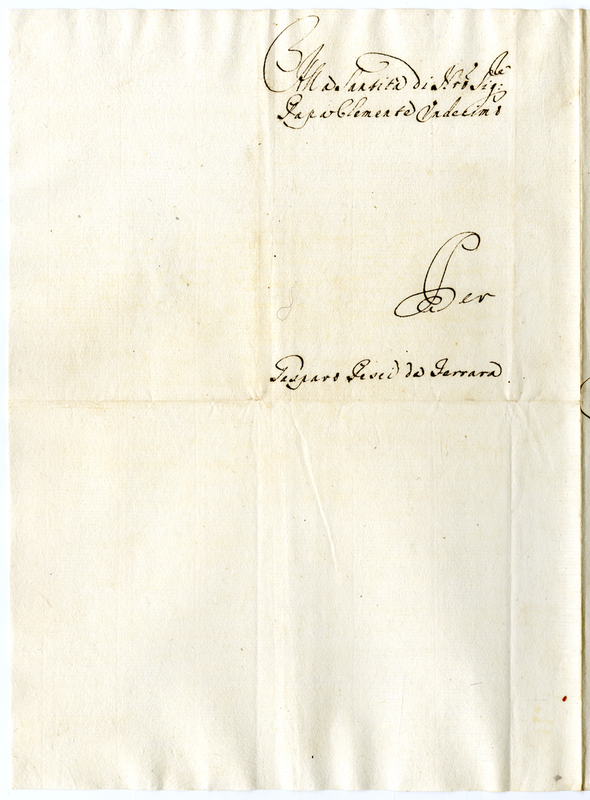 Alla Santità di Nr̃o Sig:re
Papa Clemente Undecimo
Per
Gasparo Pesci da Ferrara